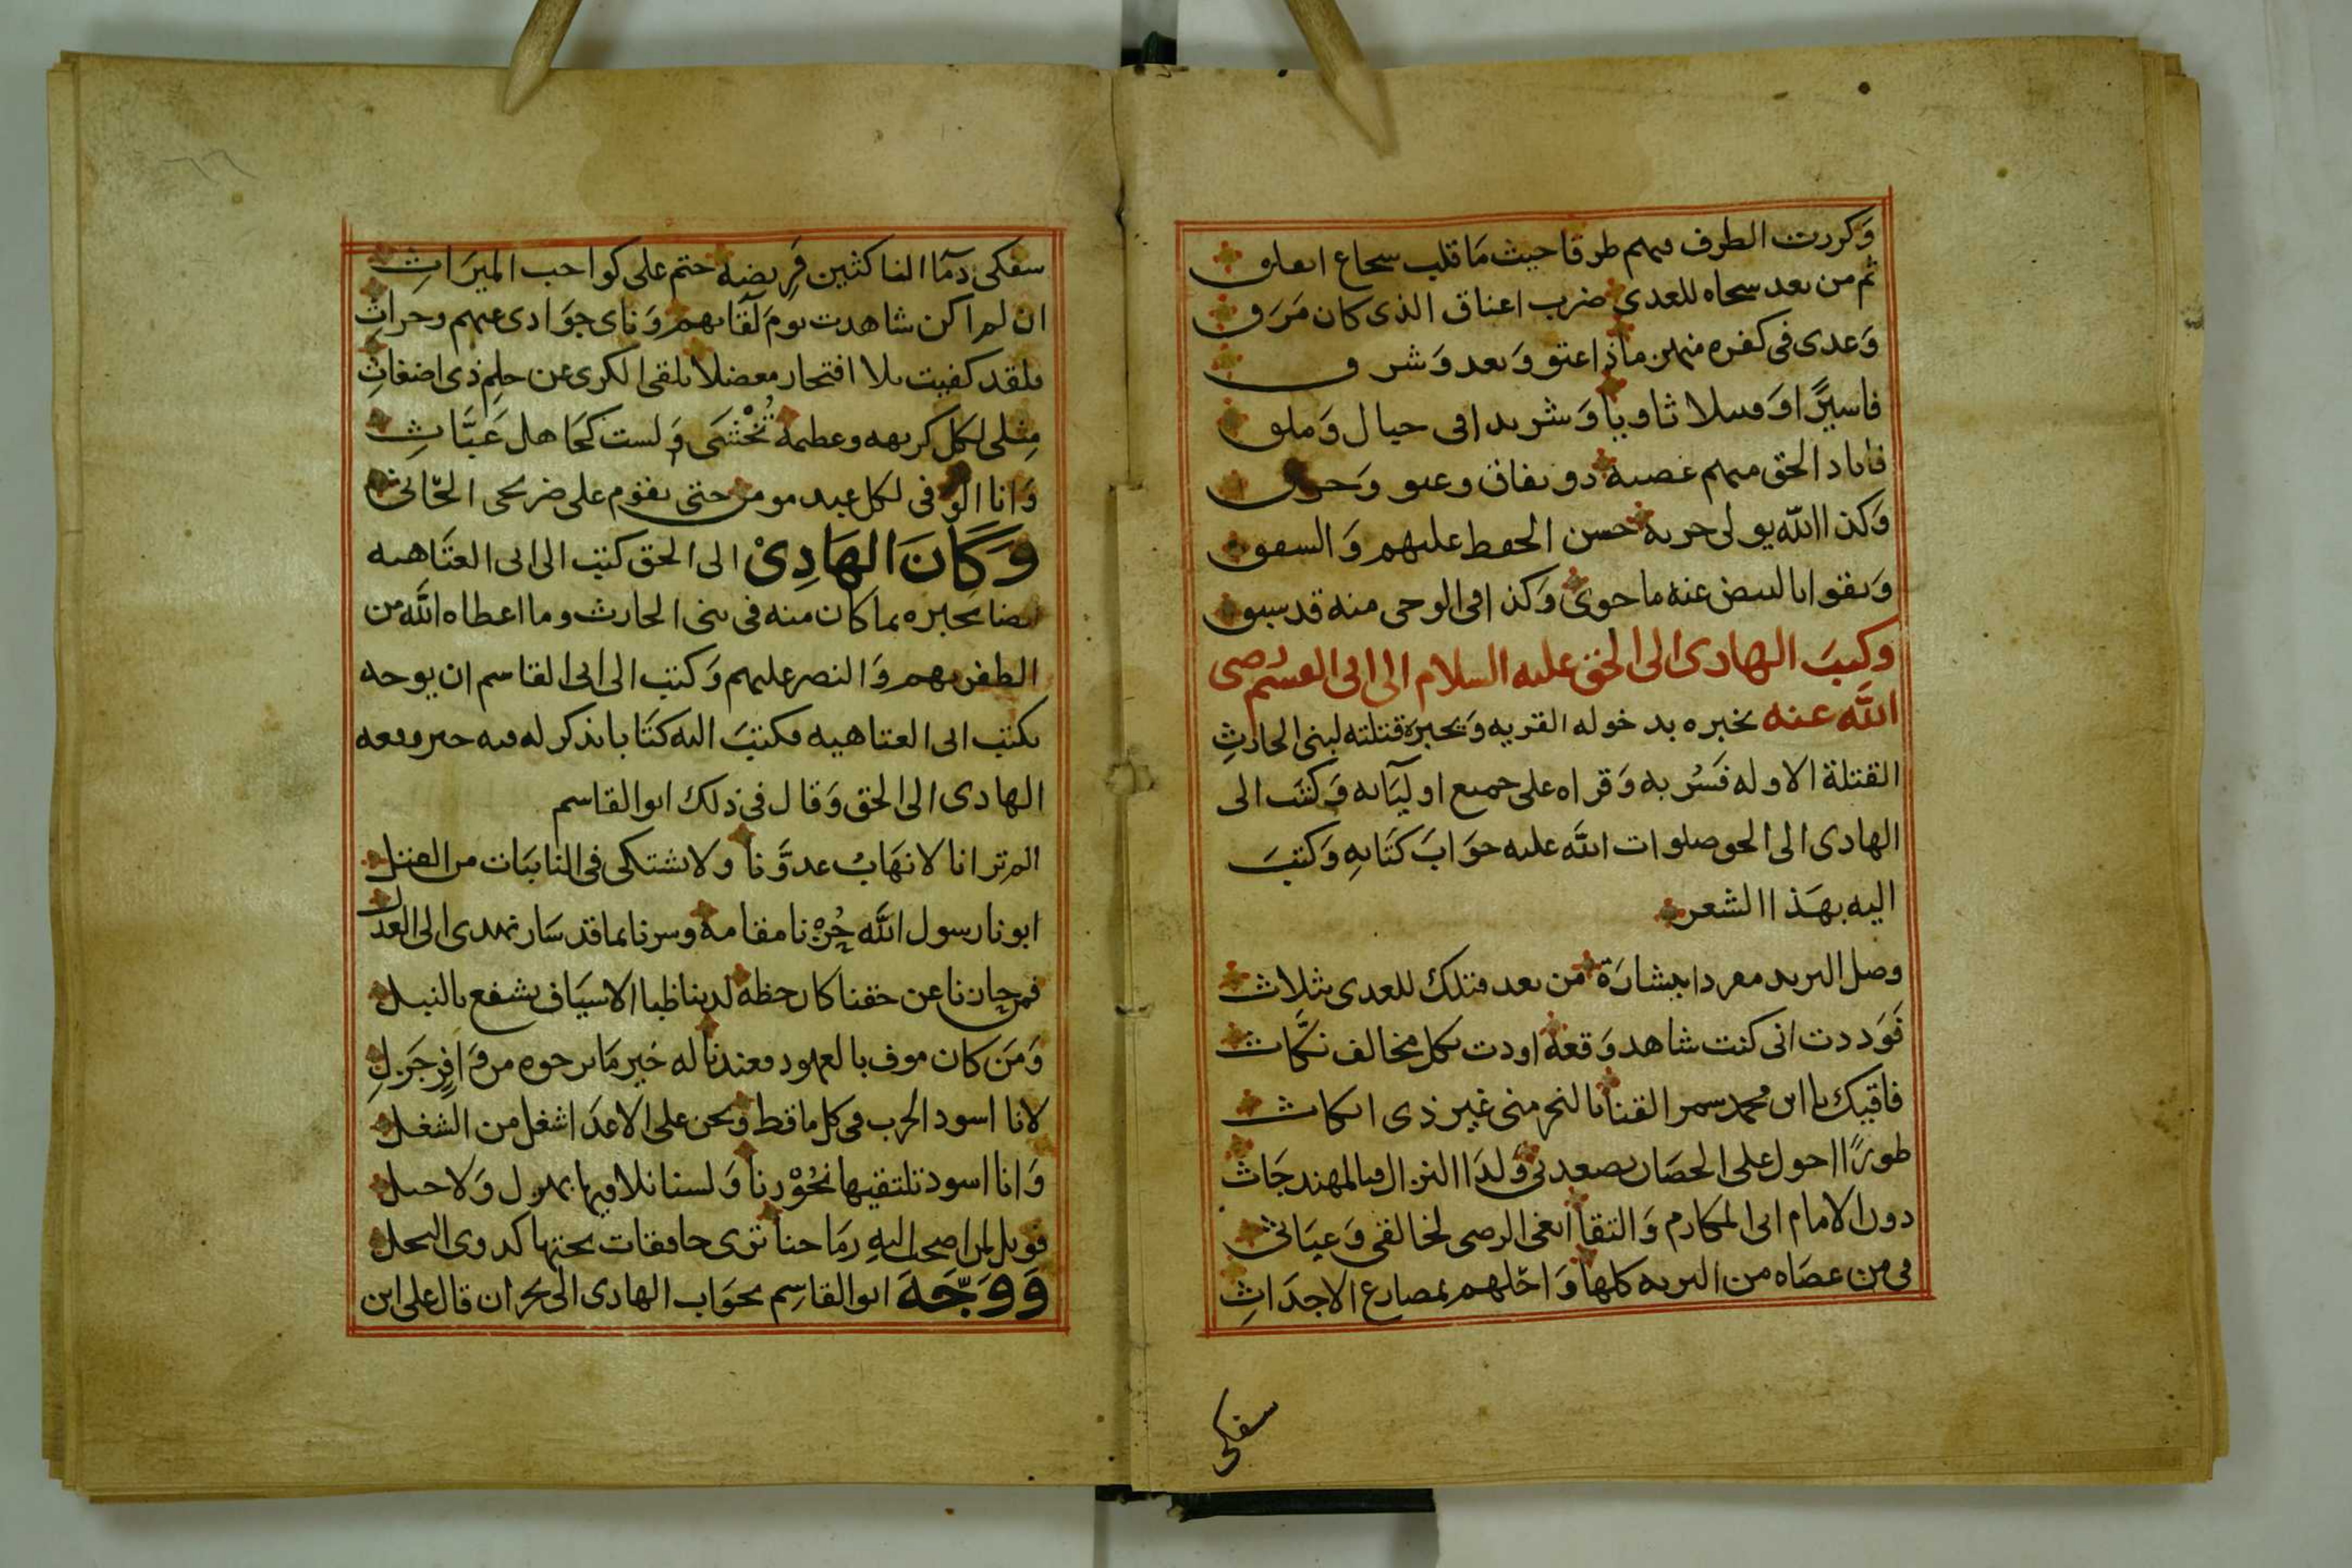 وكررت الطرف فيهم طرقا حيث ما قلب سجاع
ثم من بعد للعدى ضرب اعناق الذى كان مرق
وعدى فى كفره منهن ماذا عتو وبعد وشر
فاسيرًا او ثاويا وشريدا فى حيال وملق
فاباد الحق منهم عصبة ذو نفاق وعتو
وكذا الله يولى حزبه حسن الحفظ عليهم والسفق
وبقوا عنه ما حوى وكذا فى الوحى منه قد سبق
وكتب الهادى الى الحق عليه السلام الى ابى القسم رضى
الله عنه يخبره بدخوله القريه ويخبره قتلته لبنى الحارث
القتلة الاوله فسُر به وقراه على جميع اوليآئه وكتب الى
الهادى الى الحق صلوات الله عليه جواب كتابه وكتب
اليه بهذا الشعر
وصل البريد مغردا ببشارة من بعد قتلك للعدى بثلاث
فوددت انى كنت شاهد وقعة اودت بكل مخالف نكاث
فاقيك يا ابن محمد سمر القنا بالنحر منى غير ذى انكاث
طورًا احول على الحصان بصعدتى ولدا النزال فبالمهند جاث
دون الامام ابى المكارم والتقا ابغى الرضى لخالقى وغياثى
فى من عصاه من البريه كلها واحلهم بمصارع الاجداث
سفكى
سفكى دمآ الناكثين فريضة حتم على كواجب الميراث
ان لم اكن شاهدت يوم لقآئهم ونأى جوادى عنهم وحراث
فلقد كفيت بلا افتخار معضلا يلقى الكرى عن حلم ذى اضغاث
مثلى لكل كريهه وعظيمة تُخْشَى ولست كجاهل عبّاث
وانا الوفى لكل عبد مومن حتى يقوم على ضريحى الحاثى
وكان الهادى الى الحق كتب الى ابى العتاهيه
ايضا يخبره بما كان منه فى بنى الحارث وما اعطاه الله من
الظفر بهم والنصر عليهم وكتب الى ابى القاسم ان يوجه
بكتب ابى العتاهيه فكتب اليه كتابا يذكر له فيه خبر وقعه
الهادى الى الحق وقال فى ذلك ابو القاسم
الم تر انا لا نهاب عدونا ولا نشتكى فى النائبات من القتل
ابونا رسول الله حُزْنا مقامة وسرنا بما قد سار نهدى الى العدل
فمن حان نا عن حقنا كان حظه لدينا ظبا الاسياف يشفع بالنبل
ومن كان موف بالعهود فعندنا له خير ما يرجوه من وافر جزل
لانا اسود الحرب فى كل ماقط ونحن على الاعدا اشغل من الشغل
وانا اسود تلتقيها نحورنا ولسنا نلاقيها بهول ولا
فويل لمن اضحت اليه رماحنا ترى خافقات تحتها كدوى النحل
ووجه ابو القاسم بجواب الهادى الى نجران قال على ابن